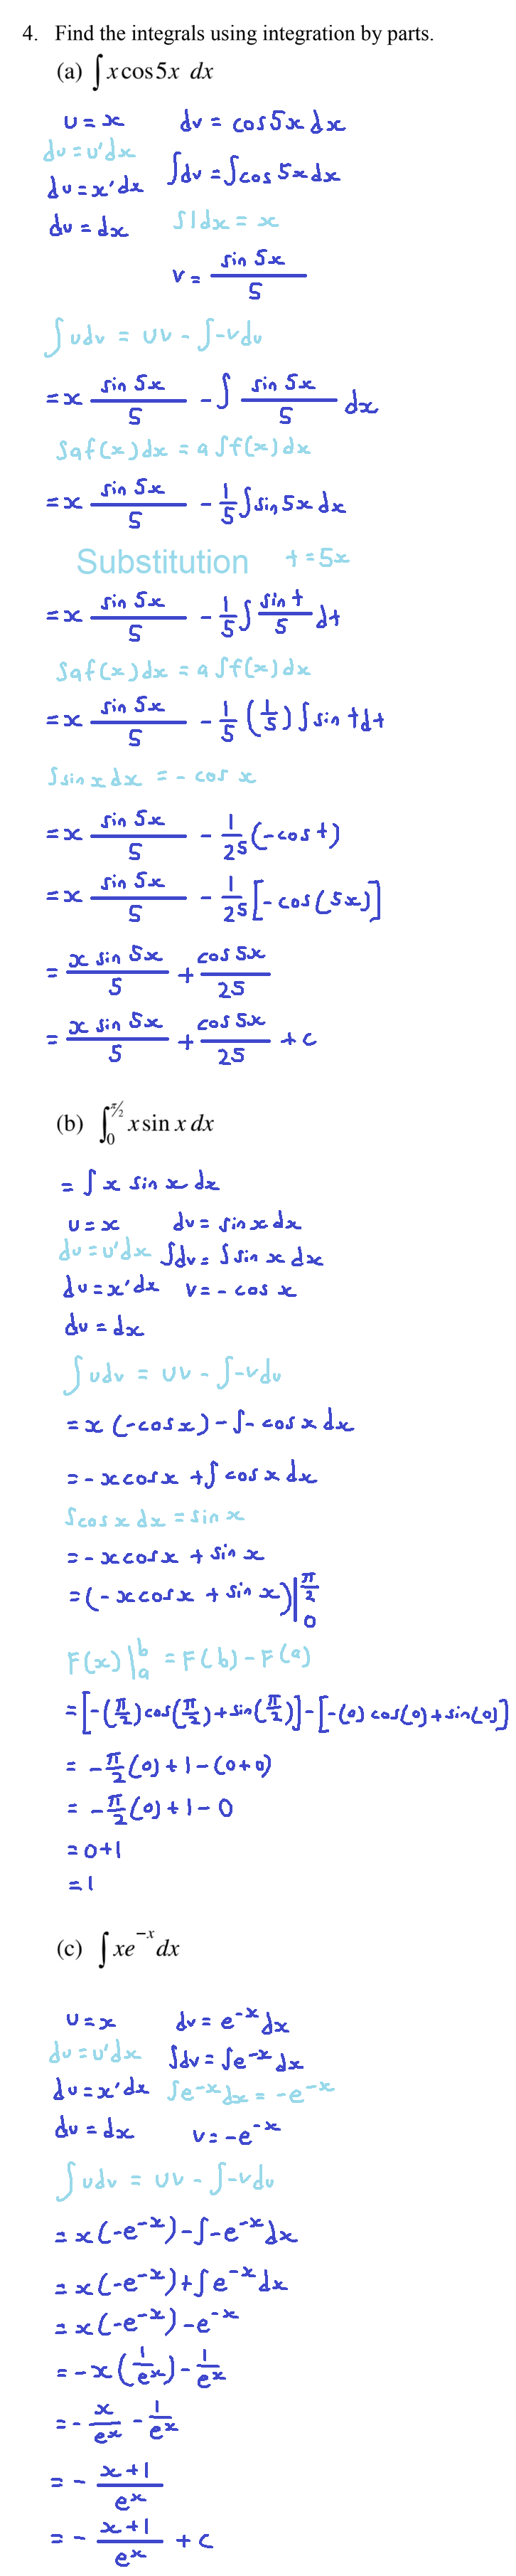 4. Find the integrals using integration by parts.
(a) ∫ x cos 5x dx
u = x dv = cos 5x dx
du = u'dx
∫dv = ∫cos 5x dx
du = x'dx
du = dx ∫1dx = x
v = sin 5x / 5
∫udv = uv - ∫-vdu
= x sin 5x / 5 - ∫ sin 5x / 5 dx
∫af(x)dx = a∫f(x)dx
= x sin 5x / 5 - 1/5 ∫sin 5x dx
Substitution t = 5x
= x sin 5x / 5 - 1/5 ∫ sin t / 5 dt
∫af(x)dx = a∫f(x)dx
= x sin 5x / 5 - 1/5 (1/5) ∫sin t dt
∫sin x dx = - cos x
= x sin 5x / 5 - 1/25 (-cos t)
= x sin 5x / 5 - 1/25 [- cos(5x)]
= x sin 5x / 5 + cos 5x / 25
= x sin 5x / 5 + cos 5x / 25 + c
(b) ∫₀^(π/2) x sin x dx
= ∫ x sin x dx
u = x dv = sin x dx
du = u'dx ∫dv = ∫ sin x dx
du = x'dx v = - cos x
du = dx
∫udv = uv - ∫-vdu
= x (-cos x) - ∫- cos x dx
= - x cos x + ∫ cos x dx
∫cos x dx = sin x
= - x cos x + sin x
= (- x cos x + sin x)|₀^(π/2)
F(x)|ₐᵇ = F(b) - F(a)
= [-(π/2) cos(π/2) + sin(π/2)] - [-(0) cos(0) + sin(0)]
= - π/2 (0) + 1 - (0+0)
= - π/2 (0) + 1 - 0
= 0+1
= 1
(c) ∫ xe^(-x) dx
u = x dv = e^(-x) dx
du = u'dx ∫dv = ∫e^(-x) dx
du = x'dx ∫e^(-x) dx = -e^(-x)
du = dx v = -e^(-x)
∫udv = uv - ∫-vdu
= x(-e^(-x)) - ∫-e^(-x) dx
= x(-e^(-x)) + ∫e^(-x) dx
= x(-e^(-x)) - e^(-x)
= -x (1/e^x) - 1/e^x
= - x/e^x - 1/e^x
= - (x+1)/e^x
= - (x+1)/e^x + c